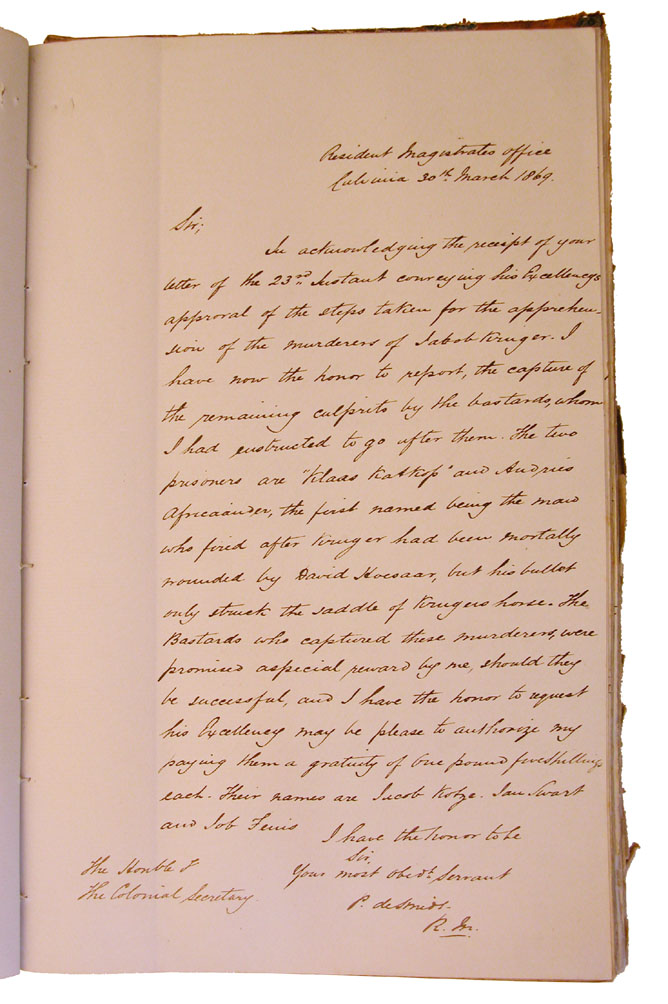 Resident Magistrates office
Calvinia 30th March 1869.
Sir,
In acknowledging the receipt of your
letter of the 23rd Instant conveying his Excellencys
approval of the steps taken for the apprehen-
sion of the murderers of Jacob Kruger. I
have now the honor to report, the capture of
the remaining culprits by the bastards, whom
I had enstructed to go after them. The two
prisoners are "Klaas Katkop" and Andries
Africaander, the first named being the man
who fired after Kruger had been mortally
wounded by David Hoesaar, but his bullet
only struck the saddle of Krugers horse. The
Bastards who captured these murderers, were
promised aspecial reward by me, should they
be successful, and I have the honor to request
his Excellency may be please to authorize my
paying them a gratuity of One pound five shillings
each. Their names are Jacob Kotze. Jan Swart
and Job Feris
I have the honor to be
Sir,
Your most obedt. Servant
P. de Smidt.
R. M.
The Honble
The Colonial Secretary.